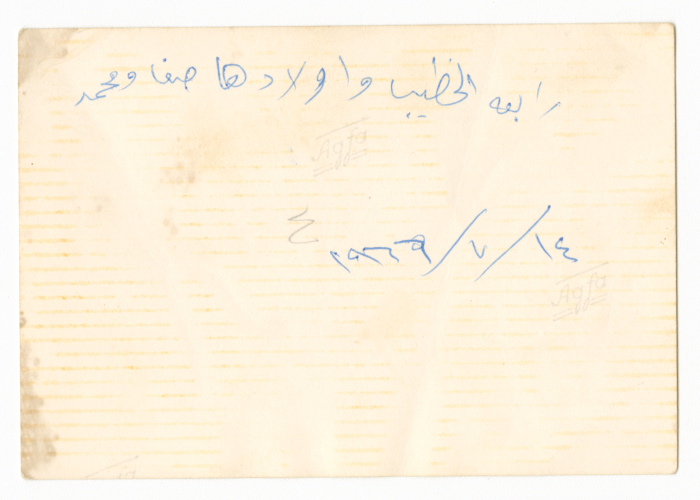 رابعه الخطيب واولادها صفا ومحمد
Agfa
٤
١٤/٧/
Agfa